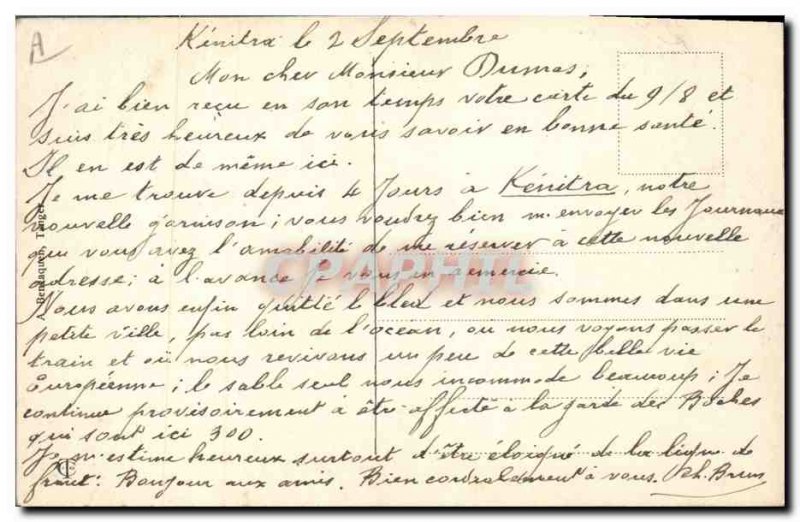 A
Kénitra le 2 Septembre
Mon cher Monsieur Dumas,
J'ai bien reçu en son temps votre carte du 9/8 et
suis très heureux de vous savoir en bonne santé.
Il en est de même ici.
Je me trouve depuis 4 Jours à Kénitra, notre
nouvelle garnison; vous voudrez bien m'envoyer les Journaux
que vous avez l'amabilité de me réserver à cette nouvelle
adresse; à l'avance Je vous en remercie.
Nous avons enfin quitté le bled et nous sommes dans une
petite ville, pas loin de l'océan, ou nous voyons passer le
train et où nous revivons un peu de cette belle vie
Européenne; le sable seul nous incommode beaucoup; Je
continue provisoirement à être affecté à la garde des Boches
qui sont ici 300.
Je m'estime heureux surtout d'être éloigné de la ligne de
front. Bonjour aux amis. Bien cordialement à vous. Ch. Brun
CPAPHIL